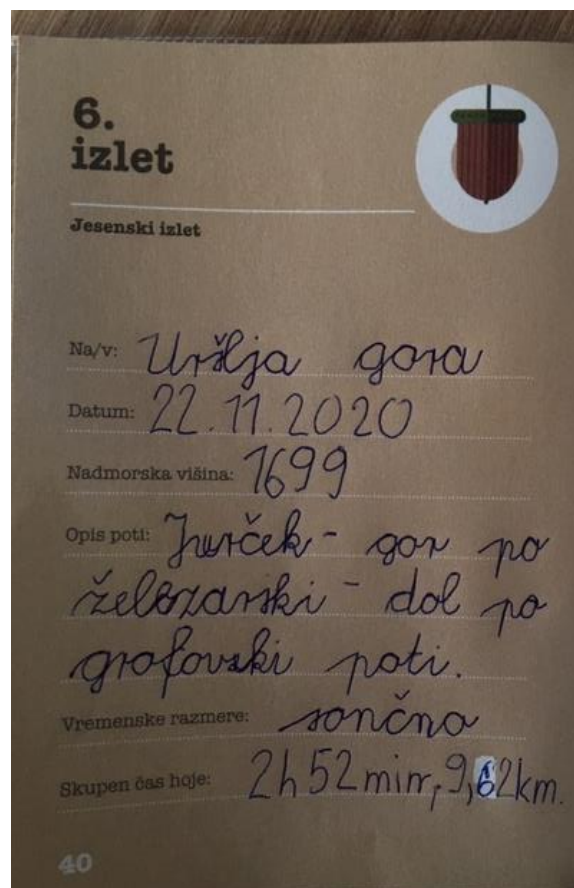 6.
izlet
Jesenski izlet
Na/v: Uršlja gora
Datum: 22.11.2020
Nadmorska višina: 1699
Opis poti: Jurček - gor po
železarski - dol po
grofovski poti.
Vremenske razmere: sončno
Skupen čas hoje: 2h 52 min, 9,62km.
40